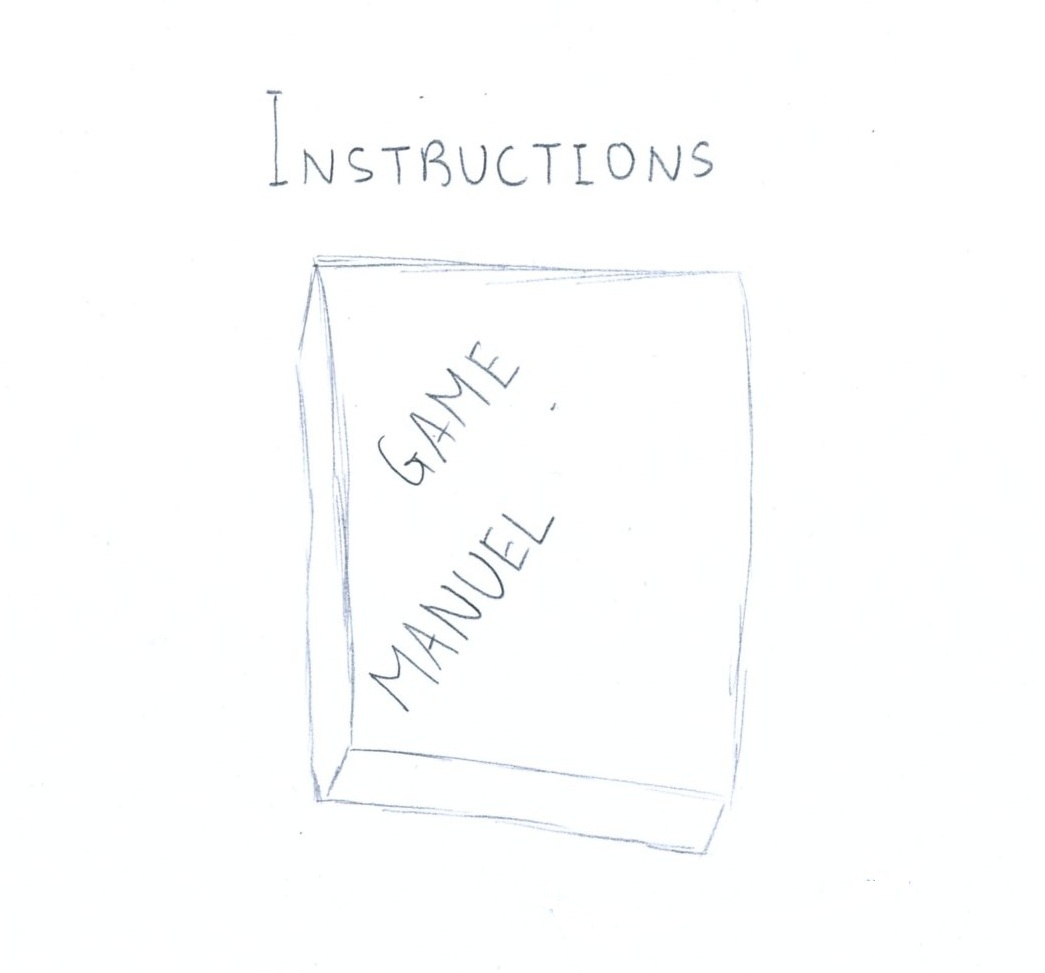 INSTRUCTIONS
GAME
MANUEL